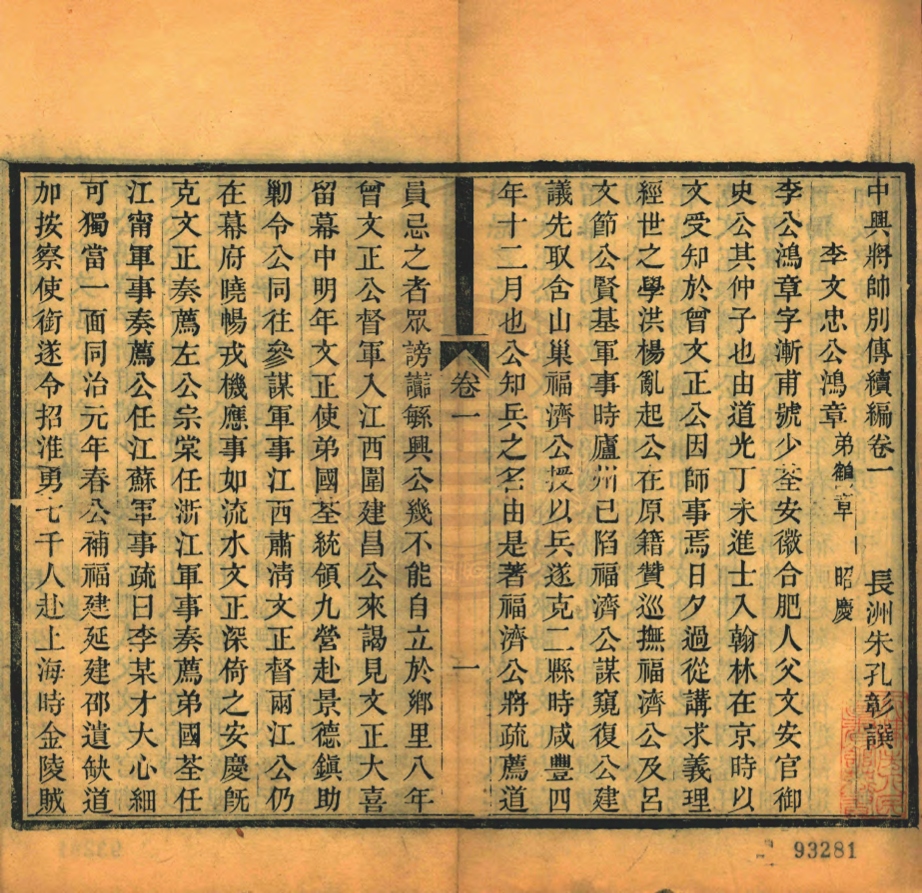 中興將帥別傳續編卷一　長洲朱孔彰譔
李文忠公鴻章弟鶴章　昭慶
李公鴻章字漸甫號少荃安徽合肥人父文安官御
史公其仲子也由道光丁未進士入翰林在京時以
文受知於曾文正公因師事焉日夕過從講求義理
經世之學洪楊亂起公在原籍贊巡撫福濟公及呂
文節公賢基軍事時廬州已陷福濟公謀窺復公建
議先取含山巢福濟公授以兵遂克二縣時咸豐四
年十二月也公知兵之名由是著福濟公將疏薦道
卷一
一
員忌之者眾謗讟繇興公幾不能自立於鄉里八年
曾文正公督軍入江西圍建昌公來謁見文正大喜
留幕中明年文正使弟國荃統領九營赴景德鎮助
勦令公同往參謀軍事江西肅清文正督兩江公仍
在幕府曉暢戎機應事如流水文正深倚之安慶旣
克文正奏薦左公宗棠任浙江軍事奏薦弟國荃任
江甯軍事奏薦公任江蘇軍事疏曰李某才大心細
可獨當一面同治元年春公補福建延建邵遺缺道
加按察使銜遂令招淮勇七千人赴上海時金陵賊
93281